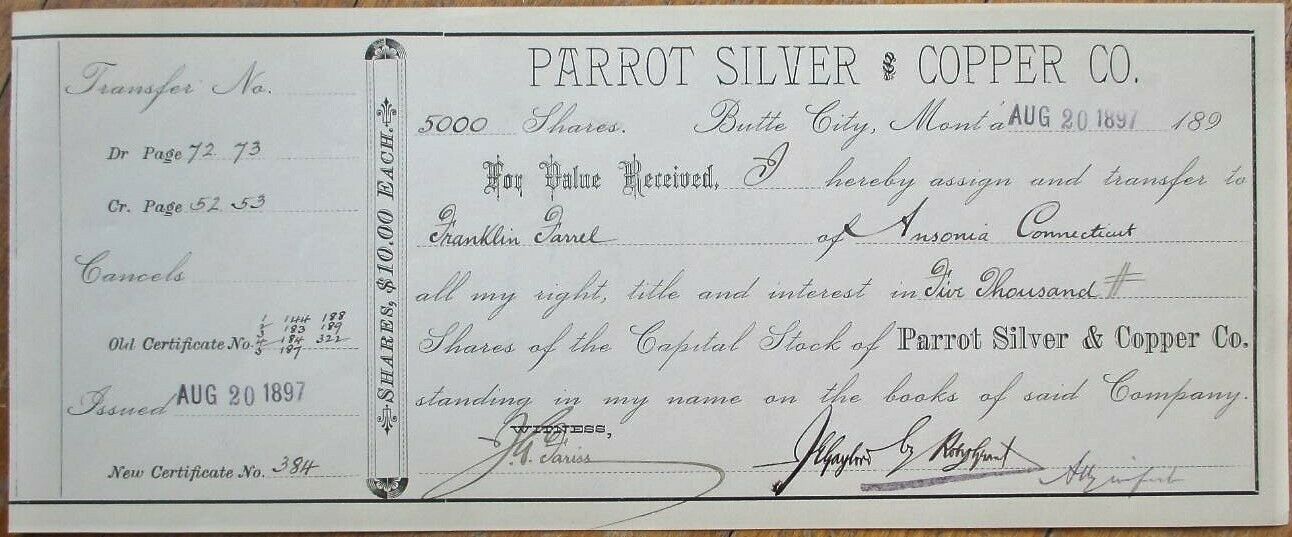 Transfer No.
Dr Page 72 73
Cr. Page 52 53
Cancels
1 144 188
2 183 189
Old Certificate No. 184 322
5 187
Issued AUG 20 1897
New Certificate No. 384
SHARES, $10.00 EACH.
PARROT SILVER & COPPER CO.
5000 Shares. Butte City, Mont'a AUG 20 1897 189
For Value Received, I hereby assign and transfer to
Franklin Farrel of Ansonia Connecticut
all my right, title and interest in Five Thousand
Shares of the Capital Stock of Parrot Silver & Copper Co.
standing in my name on the books of said Company.
WITNESS,
Fariss
Gaylord by